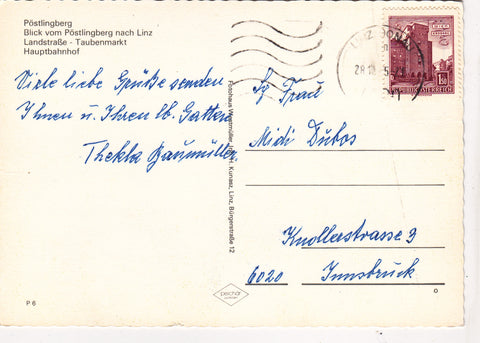 Pöstlingberg
Blick vom Pöstlingberg nach Linz
Landstraße - Taubenmarkt
Hauptbahnhof
Viele liebe Grüße senden
Ihnen u. Ihren lb. Gatten
Thekla Baumüller
Fotohaus
Kunasz, Linz, Bürgerstraße 12
LINZ
REPUBLIK ÖSTERREICH
Frau
Midi Dubos
Knollerstrasse 3
6020 Innsbruck
P 6